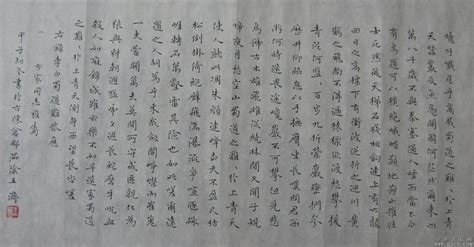 噫吁嚱危乎高哉蜀道之難難於上青
天蠶叢及魚鳧開國何茫然爾來四
萬八千歲不與秦塞通人煙西當太白
有鳥道可以橫絕峨眉巔地崩山摧壯
士死然後天梯石棧相鉤連上有六龍
回日之高標下有衝波逆折之迴川黃
鶴之飛尚不得過猿猱欲度愁攀援
青泥何盤盤百步九折縈巖巒捫參
歷井仰脅息以手撫膺坐長嘆問君西
遊何時還畏途巉巖不可攀但見悲
鳥號古木雄飛雌從繞林間又聞子規
啼夜月愁空山蜀道之難難於上青天
使人聽此凋朱顏連峰去天不盈尺枯
松倒掛倚絕壁飛湍瀑流爭喧豗砯
崖轉石萬壑雷其險也如此嗟爾遠
道之人胡為乎來哉劍閣崢嶸而崔嵬
一夫當關萬夫莫開所守或匪親化為
狼與豺朝避猛虎夕避長蛇磨牙吮血
殺人如麻錦城雖云樂不如早還家蜀道
之難難於上青天側身西望長咨嗟
右錄李白蜀道難
方家同志雅屬
甲子初冬書於古陳倉